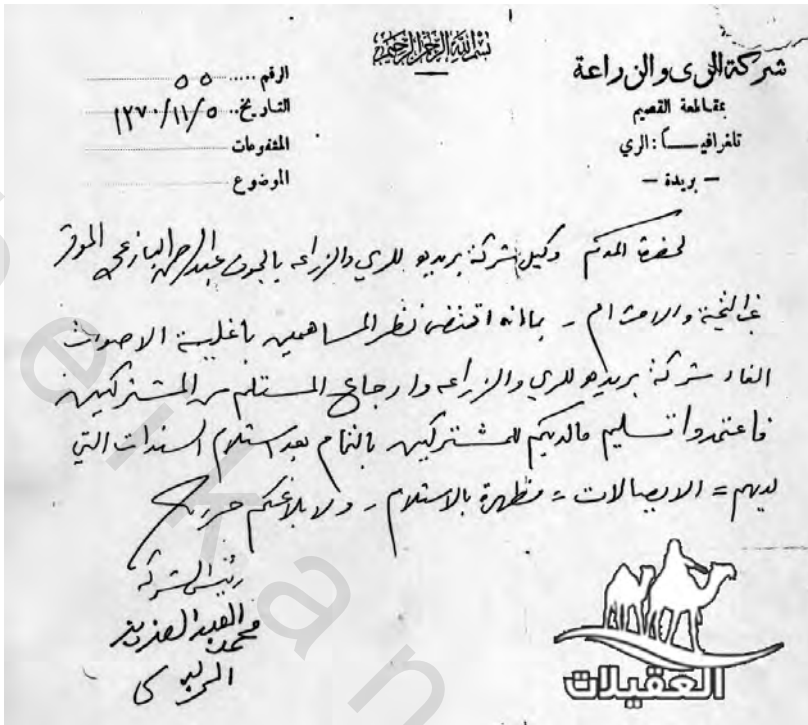 بسم الله الرحمن الرحيم
شركة الري والزراعة
بمقاطعة القصيم
تلغرافيــــاً : الري
– بريدة –
الرقم ..... ٥٥
التاريخ.. ١٣٧٠/١١/٥
المشفوعات
الموضوع
لحضرة المكرم وكيل شركة بريده للري والزراعه بالجوف عبدالرحمن البازعي الموقر
غب التحية والاحترام - بما انه اقتضى نظر المساهمين باغلبية الاصوات
الغاء شركة بريده للري والزراعه وارجاع المستلم من المشتركين
فاعتمدوا تسليم مالديكم للمشتركين بالتمام بعد استلام السندات التي
لديهم = الايصالات = مظهرة بالاستلام - ولابلاغكم حرر
رئيس الشركة
محمد العبدالعزيز
الربدي
العقيلات